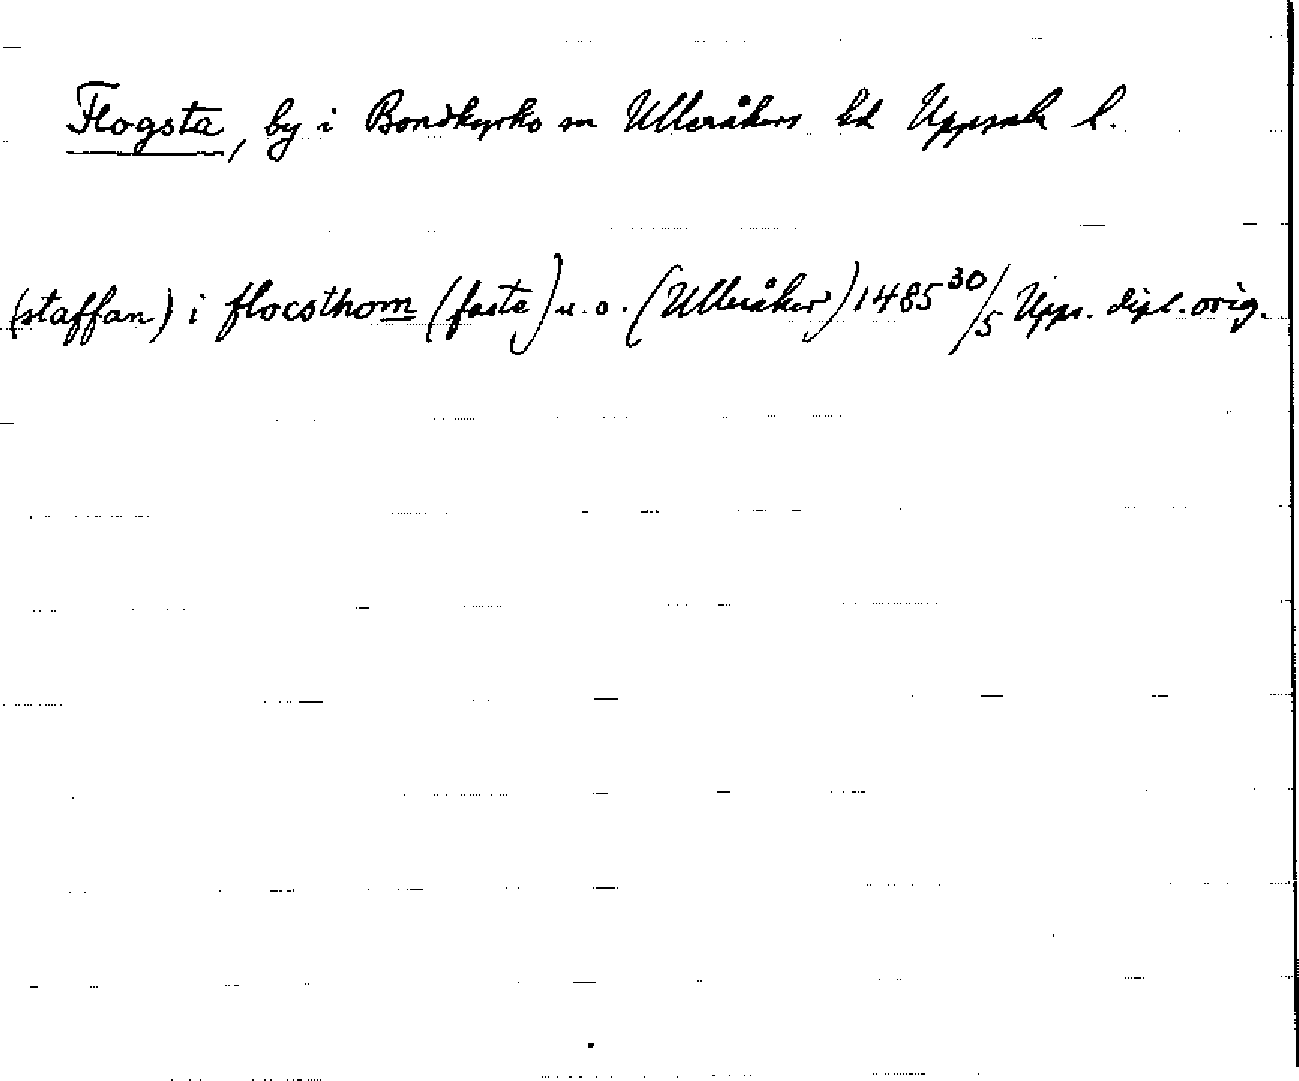 Flogsta, by i Bondkyrko sn Ulleråkers hd Uppsala l.
(staffan) i flocsthom (fasta) u. o. (Ulleråker) 1485 30/5 Upps. dipl. orig.